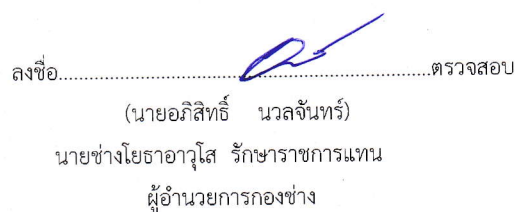 ลงชื่อ..........................................................ตรวจสอบ
(นายอภิสิทธิ์ นวลจันทร์)
นายช่างโยธาอาวุโส รักษาราชการแทน
ผู้อำนวยการกองช่าง